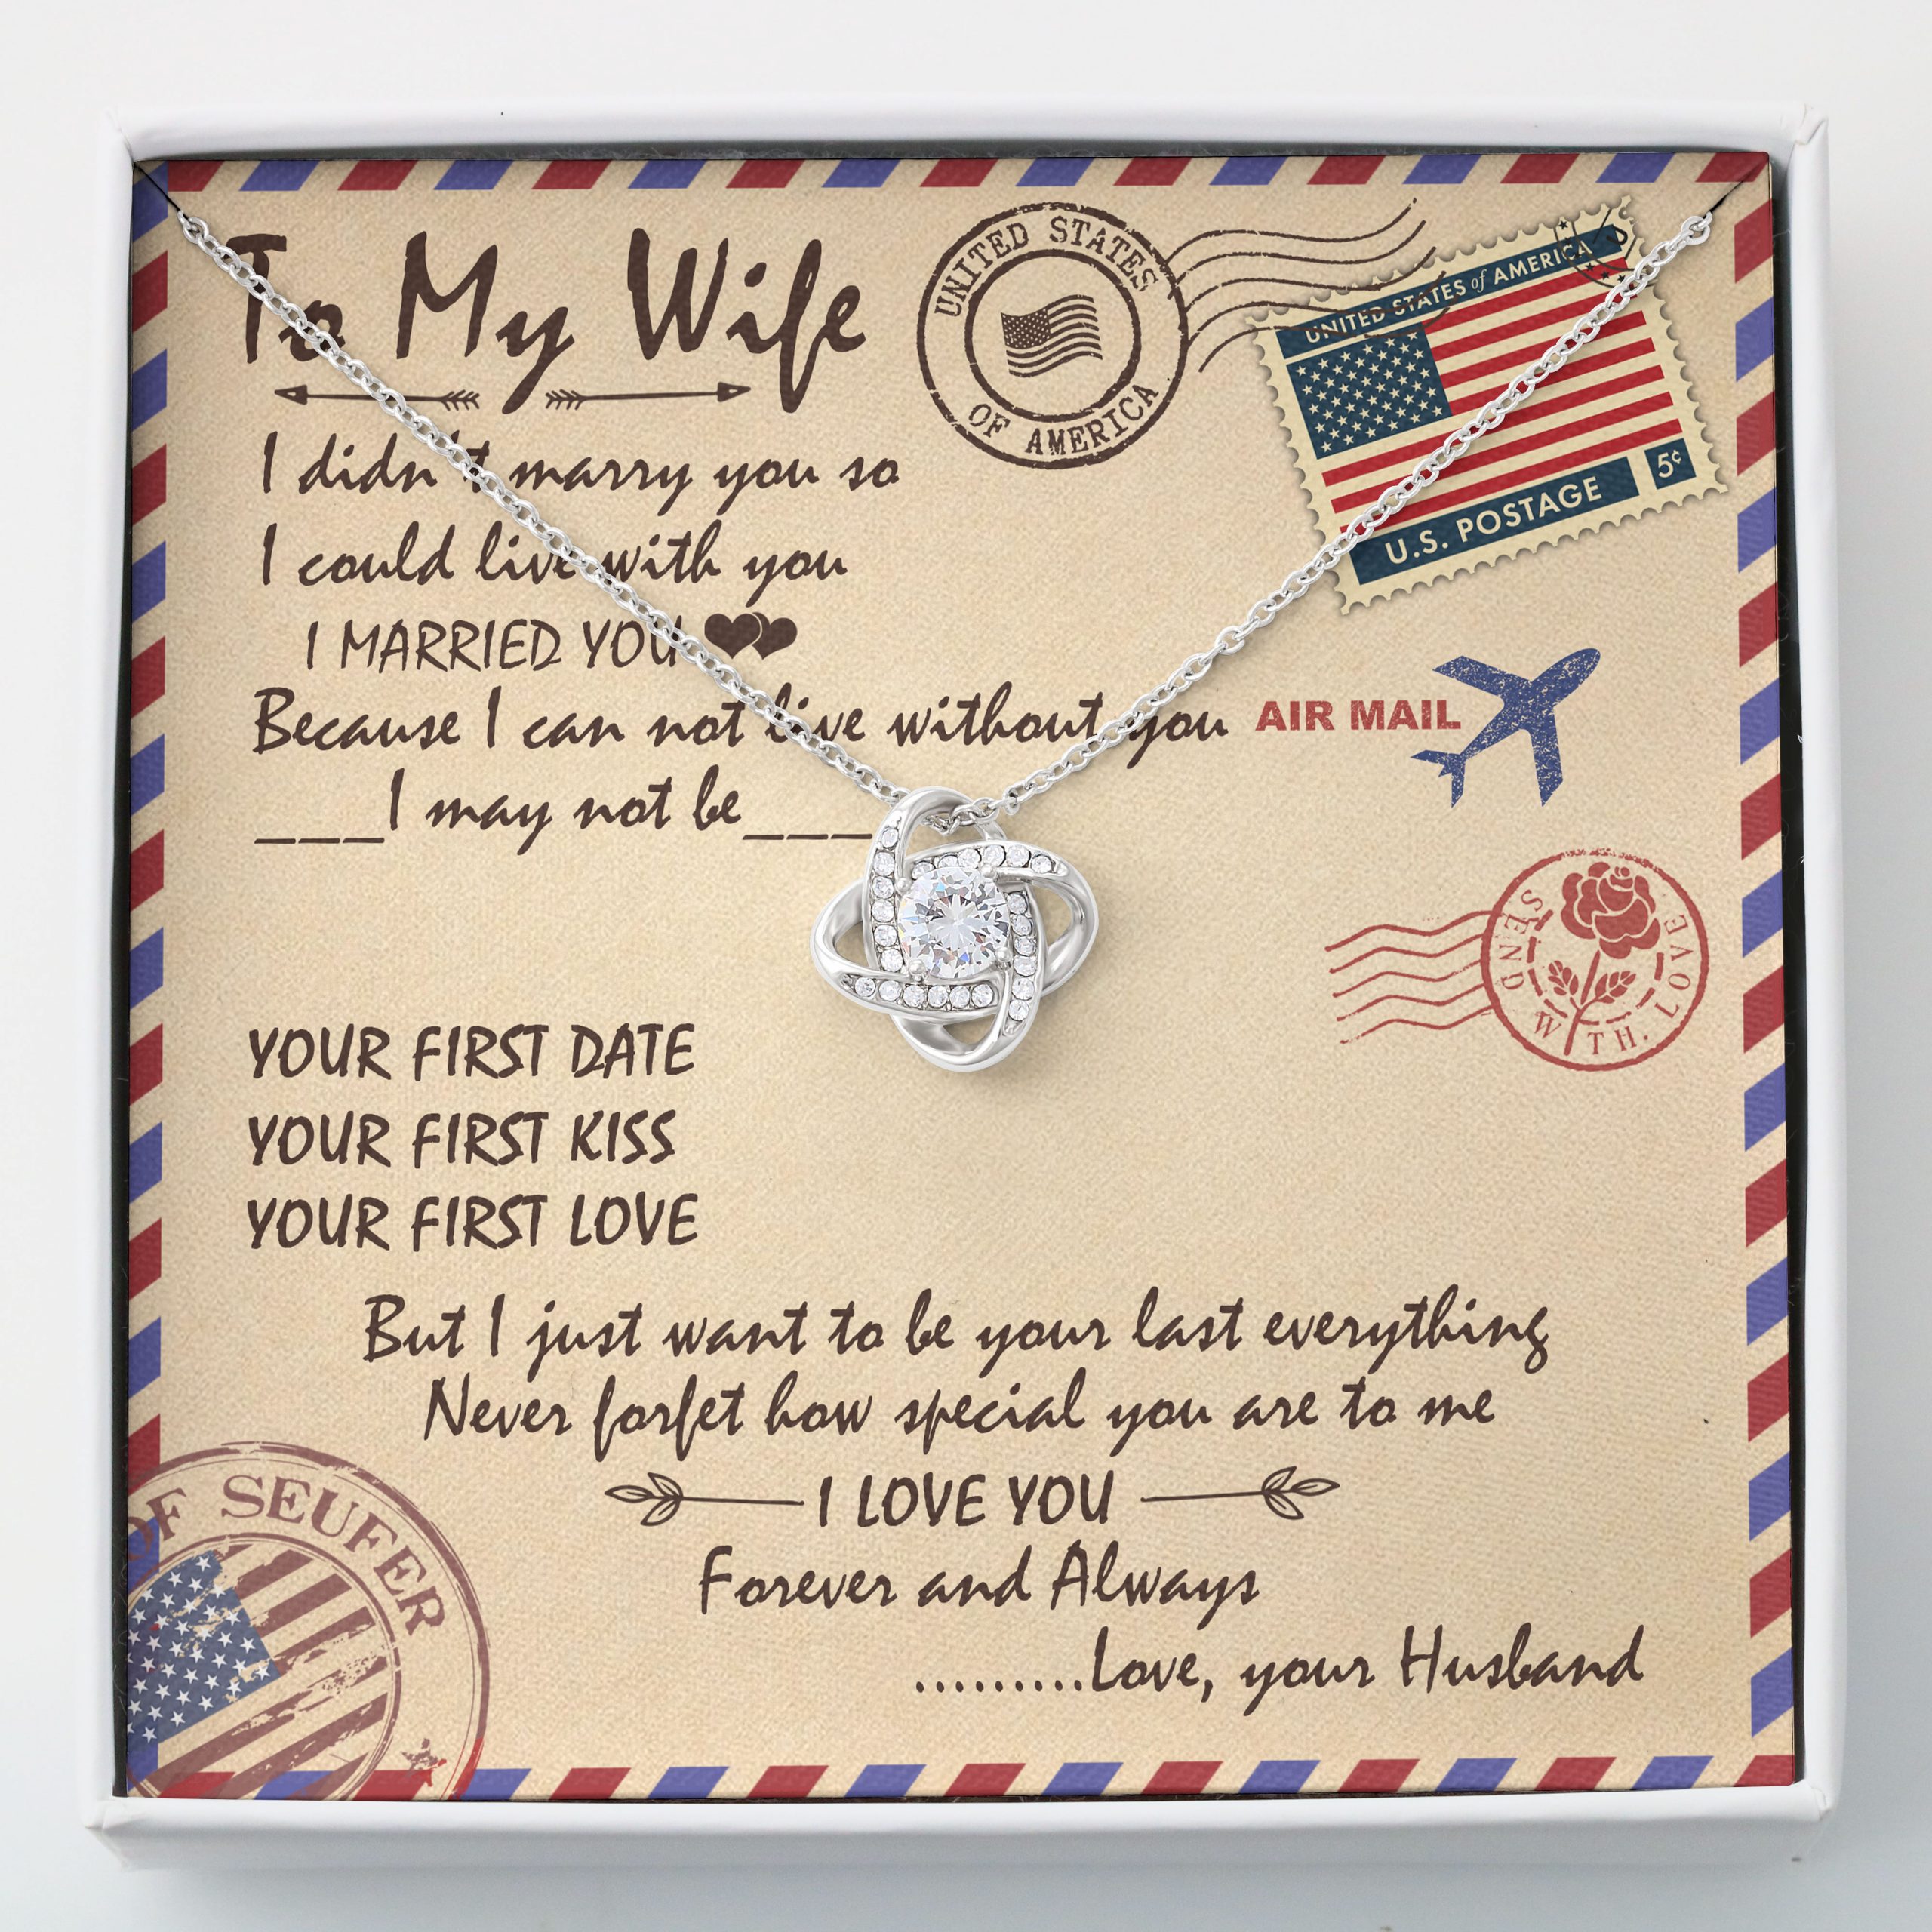 To My Wife
UNITED STATES
OF AMERICA
UNITED STATES of AMERICA
5¢
U.S. POSTAGE
I didn't marry you so
I could live with you
I MARRIED YOU
Because I can not live without you
AIR MAIL
___I may not be___
SEND WITH. LOVE
YOUR FIRST DATE
YOUR FIRST KISS
YOUR FIRST LOVE
But I just want to be your last everything
Never forfet how special you are to me
I LOVE YOU
OF SEUFER
Forever and Always
.........Love, your Husband